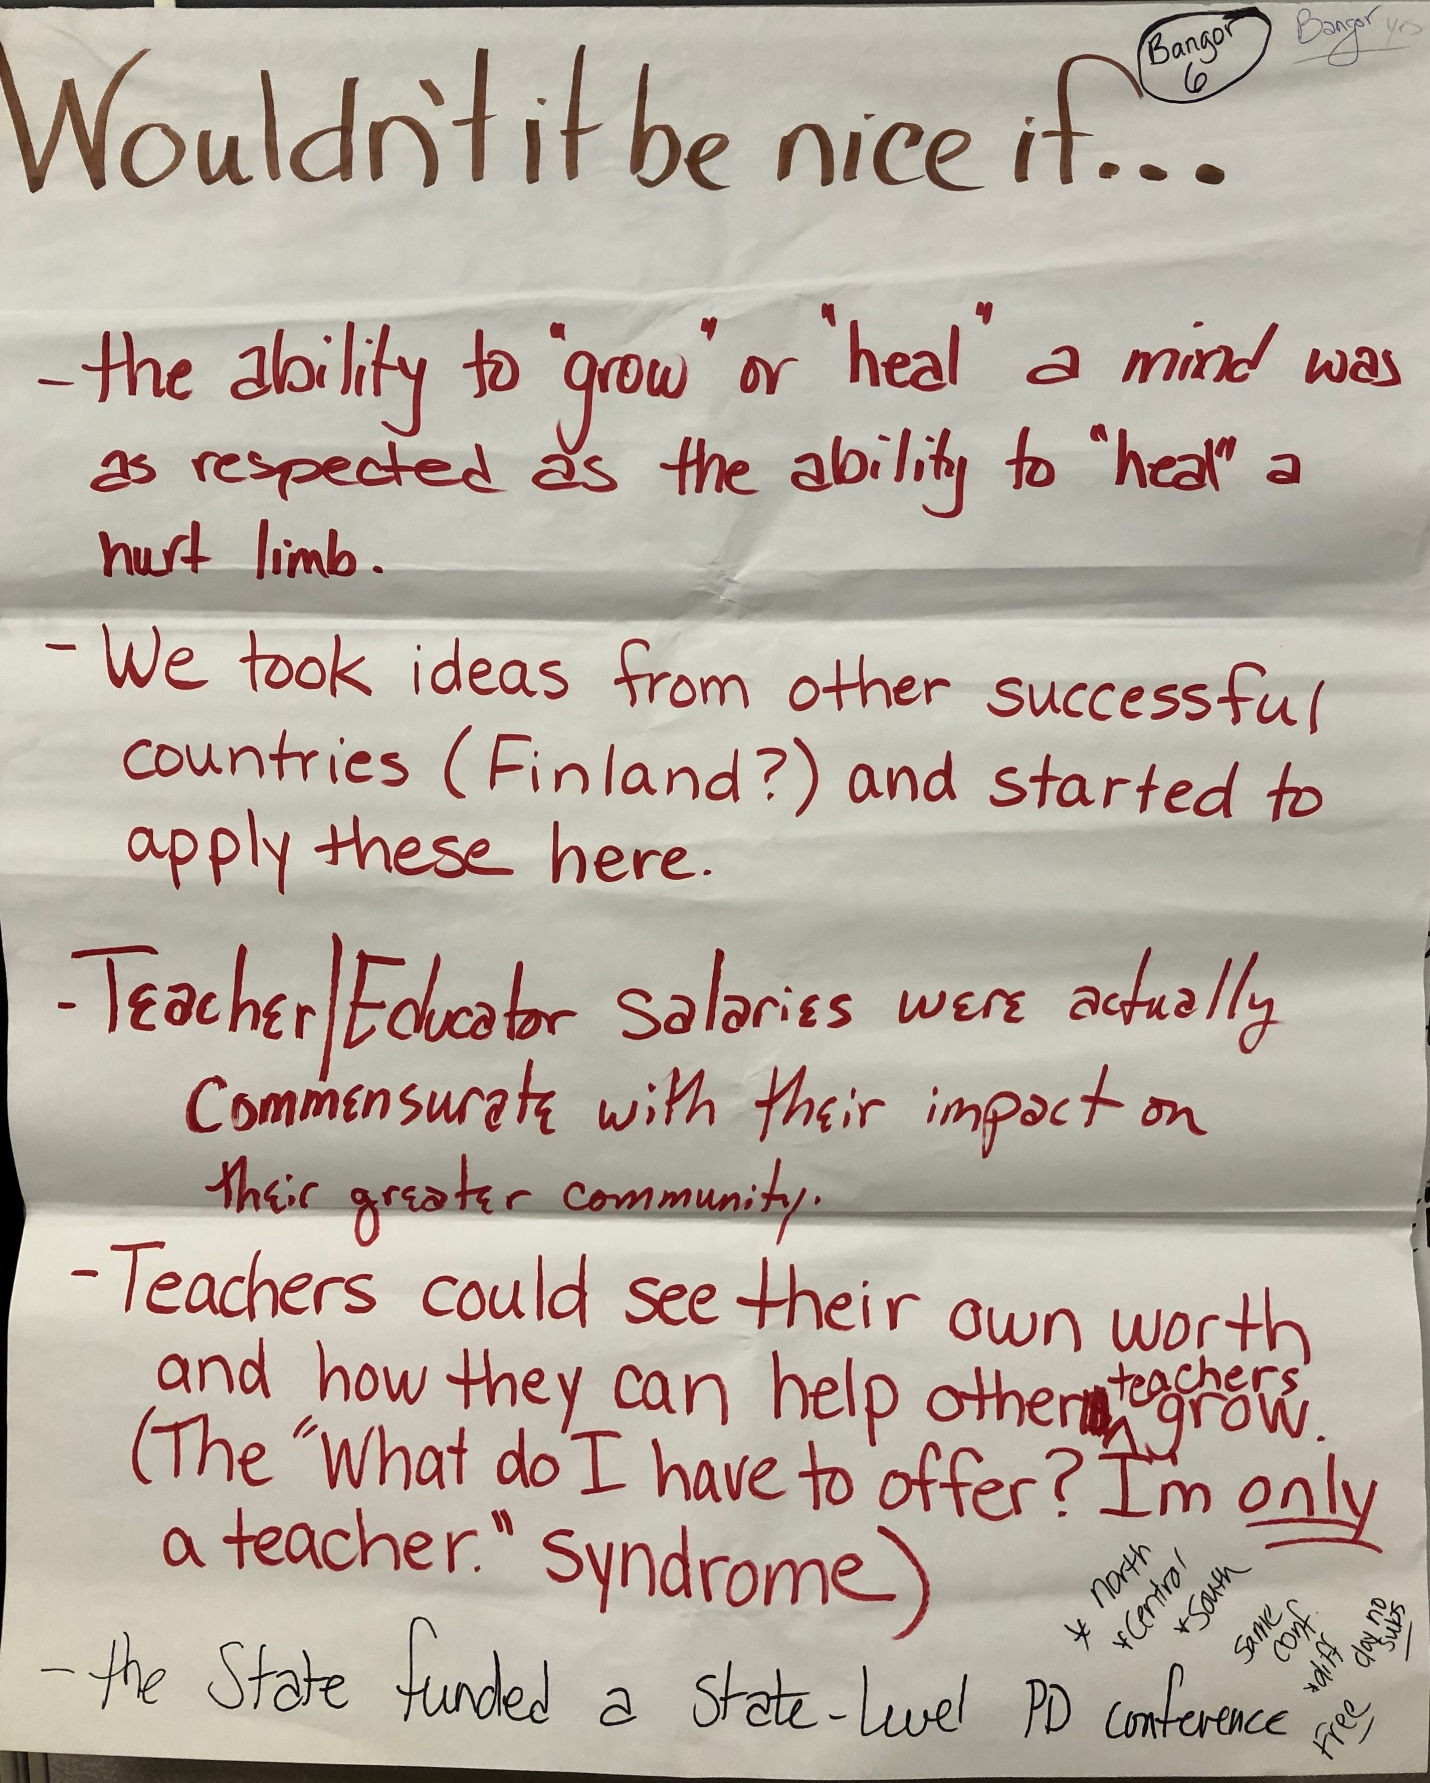 Bangor
6
Bangor yes
Wouldn't it be nice if...
- the ability to "grow" or "heal" a mind was
as respected as the ability to "heal" a
hurt limb.
- We took ideas from other successful
countries (Finland?) and started to
apply these here.
- Teacher/Educator salaries were actually
Commensurate with their impact on
their greater community.
- Teachers could see their own worth
and how they can help other teachers grow.
(The "What do I have to offer? I'm only
a teacher." Syndrome)
- the State funded a State-level PD conference
* north
* Central
* South
same
conf.
* diff
day no
subs
Free